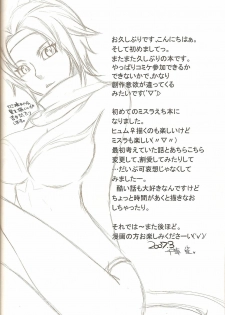 お久しぶりです、こんにちはぁ。
そして初めましてっ。
またまた久しぶりの本です。
やっぱりコミケ参加できるか
できないかで、かなり
創作意欲が違ってくる
みたいです(´▽`)
初めてのミスラえち本に
なりました。
ヒュム♀描くのも楽しいけど
ミスラも楽しい(〃▽〃)
最初考えていた話とあちこちこら
変更して、割愛してみたりして
…だいぶ可哀想じゃなくして
みましたー。
酷い話も大好きなんですけど
ちょっと時間があくと描きなお
しちゃったり。
それでは～また後ほど。
漫画の方お楽しみくださーい(√)
2007.3